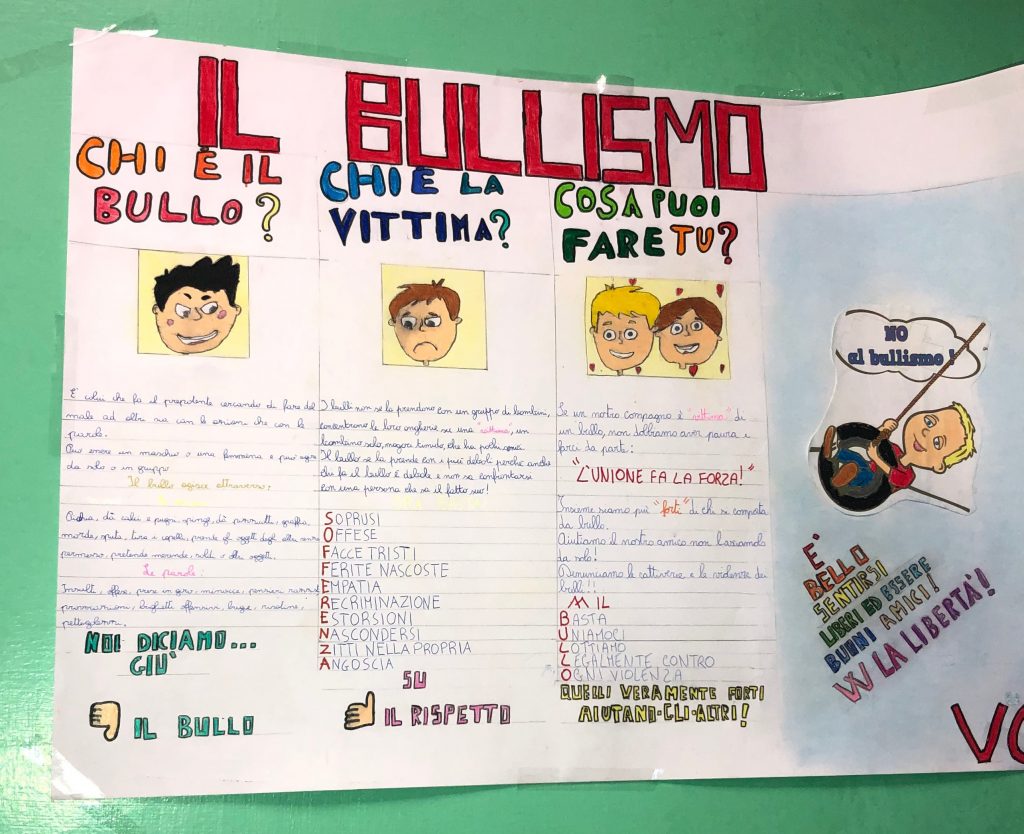 IL BULLISMO
CHI È IL
BULLO?
È colui che fa il prepotente cercando di fare del
male ad altri sia con le azioni che con le
parole.
Può essere un maschio o una femmina e può agire
da solo o in gruppo
Il bullo agisce attraverso:
dà calci e pugni, spinge, dà
morde, sputa, tira i capelli, prende gli oggetti degli altri senza
permesso, pretende merende, soldi o altri oggetti.
Le parole:
Insulti, offese, prese in giro, minacce, pensieri
provocazioni, biglietti offensivi, bugie,
pettegolezzi.
NOI DICIAMO...
GIÙ
IL BULLO
CHI È LA
VITTIMA?
I bulli non se la prendono con un gruppo di bambini,
concentrano le loro angherie su una "vittima", un
bambino solo, magari timido, che ha pochi amici
Il bullo se la prende con i più deboli perché anche
chi fa il bullo è debole e non sa confrontarsi
con una persona che sa il fatto suo!
SOPRUSI
OFFESE
FACCE TRISTI
FERITE NASCOSTE
EMPATIA
RECRIMINAZIONE
ESTORSIONI
NASCONDERSI
ZITTI NELLA PROPRIA
ANGOSCIA
SU
IL RISPETTO
COSA PUOI
FARE TU?
Se un nostro compagno è "vittima" di
un bullo, non dobbiamo aver paura e
farci da parte:
"L'UNIONE FA LA FORZA!"
Insieme siamo più "forti" di chi si comporta
da bullo.
Aiutiamo il nostro amico non lasciamolo
da solo!
Denunciamo le cattiverie e le violenze dei
bulli!!!
IL
BASTA
UNIAMOCI
LOTTIAMO
LEGALMENTE CONTRO
OGNI VIOLENZA
QUELLI VERAMENTE FORTI
AIUTANO-GLI-ALTRI!
NO
al bullismo!
È
BELLO
SENTIRSI
LIBERI ED ESSERE
BUONI AMICI!
W LA LIBERTÀ!